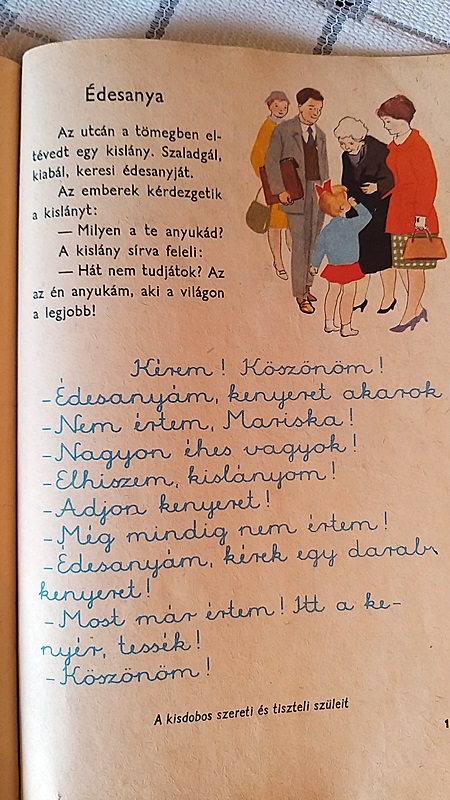 Édesanya
Az utcán a tömegben el-
tévedt egy kislány. Szaladgál,
kiabál, keresi édesanyját.
Az emberek kérdezgetik
a kislányt:
— Milyen a te anyukád?
A kislány sírva feleli:
— Hát nem tudjátok? Az
az én anyukám, aki a világon
a legjobb!
Kérem! Köszönöm!
-Édesanyám, kenyeret akarok
-Nem értem, Mariska!
-Nagyon éhes vagyok!
-Elhiszem, kislányom!
-Adjon kenyeret!
-Még mindig nem értem!
-Édesanyám, kérek egy darab
kenyeret!
-Most már értem! Itt a ke-
nyér, tessék!
-Köszönöm!
A kisdobos szereti és tiszteli szüleit
1